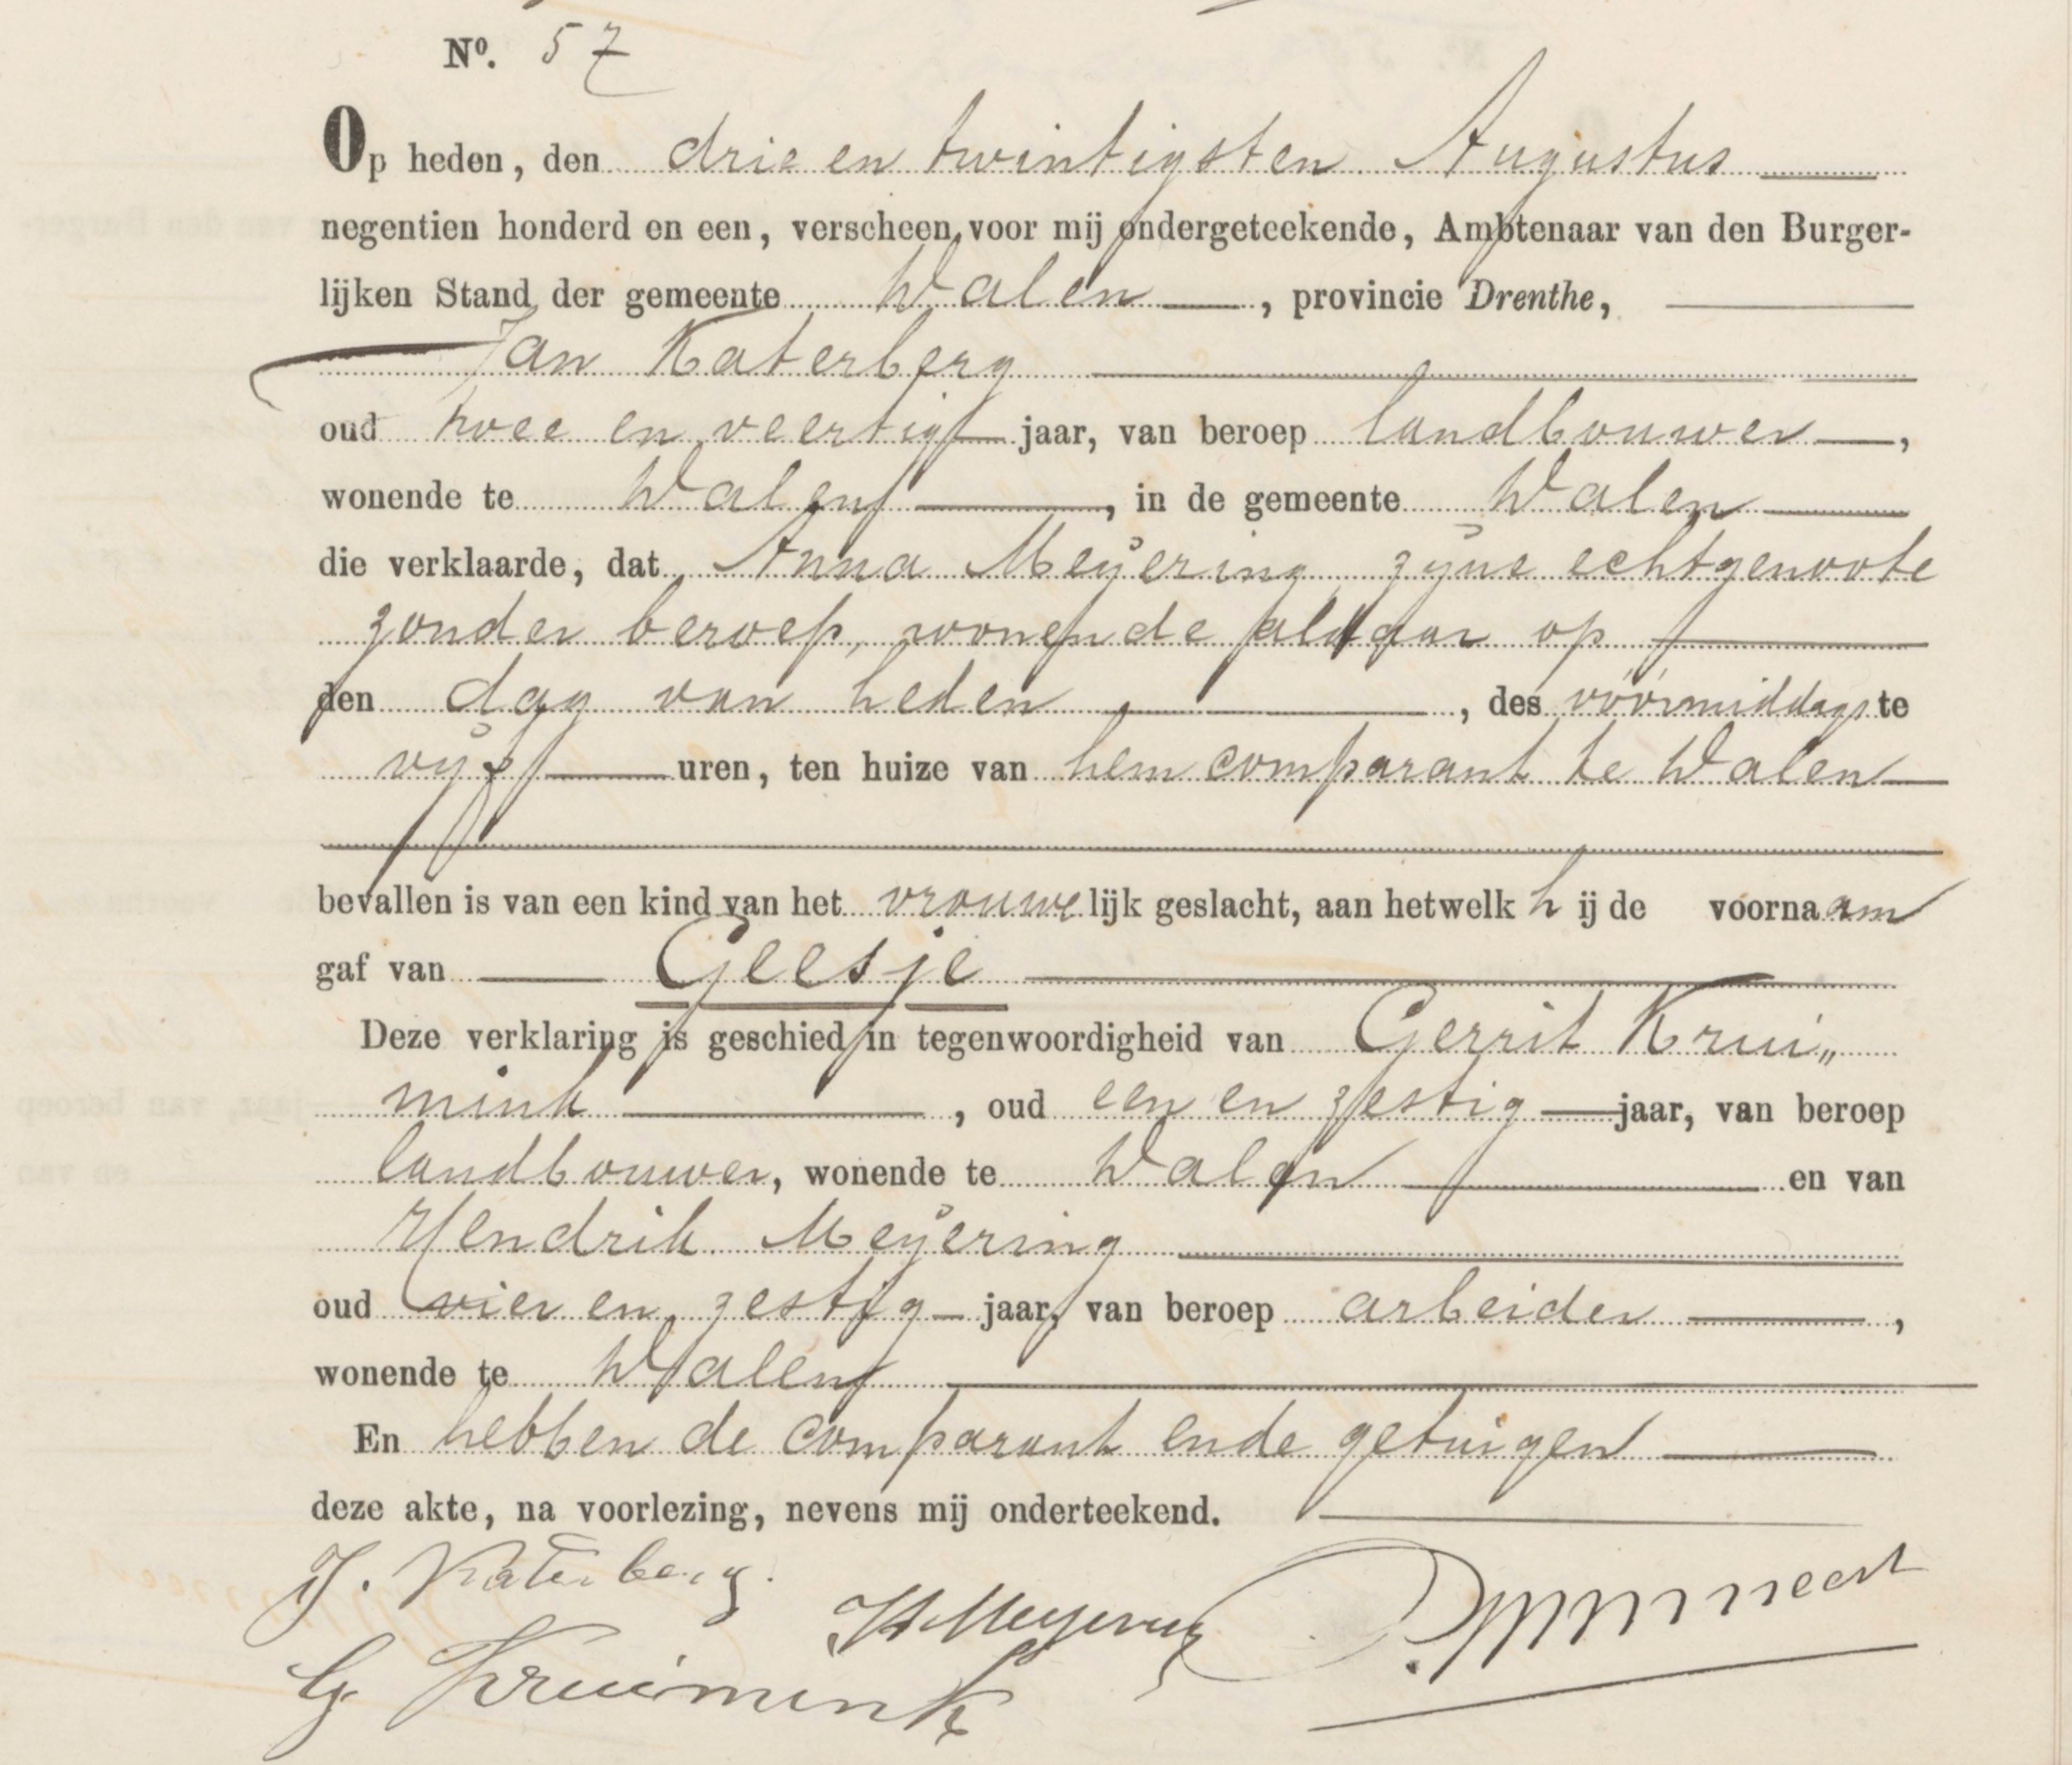 Nº. 57
Op heden, den drie en twintigsten Augustus
negentien honderd en een, verscheen voor mij ondergeteekende, Ambtenaar van den Burger-
lijken Stand der gemeente Dalen, provincie Drenthe,
Jan Katerberg
oud twee en veertig jaar, van beroep landbouwer,
wonende te Dalen, in de gemeente Dalen
die verklaarde, dat Anna Meÿering zÿne echtgenoote
zonder beroep, wonende aldaar op
den dag van heden, des vóórmiddags te
vÿf uren, ten huize van hem comparant te Dalen
bevallen is van een kind van het vrouwelijk geslacht, aan hetwelk hij de voornaam
gaf van Geesje
Deze verklaring is geschied in tegenwoordigheid van Gerrit Krui„
mink, oud een en zestig jaar, van beroep
landbouwer, wonende te Dalen en van
Hendrik Meÿering
oud vier en zestig jaar, van beroep arbeider,
wonende te Dalen
En hebben de comparant en de getuigen
deze akte, na voorlezing, nevens mij onderteekend.
J. Katerberg.
H Meyering
G Kruimink